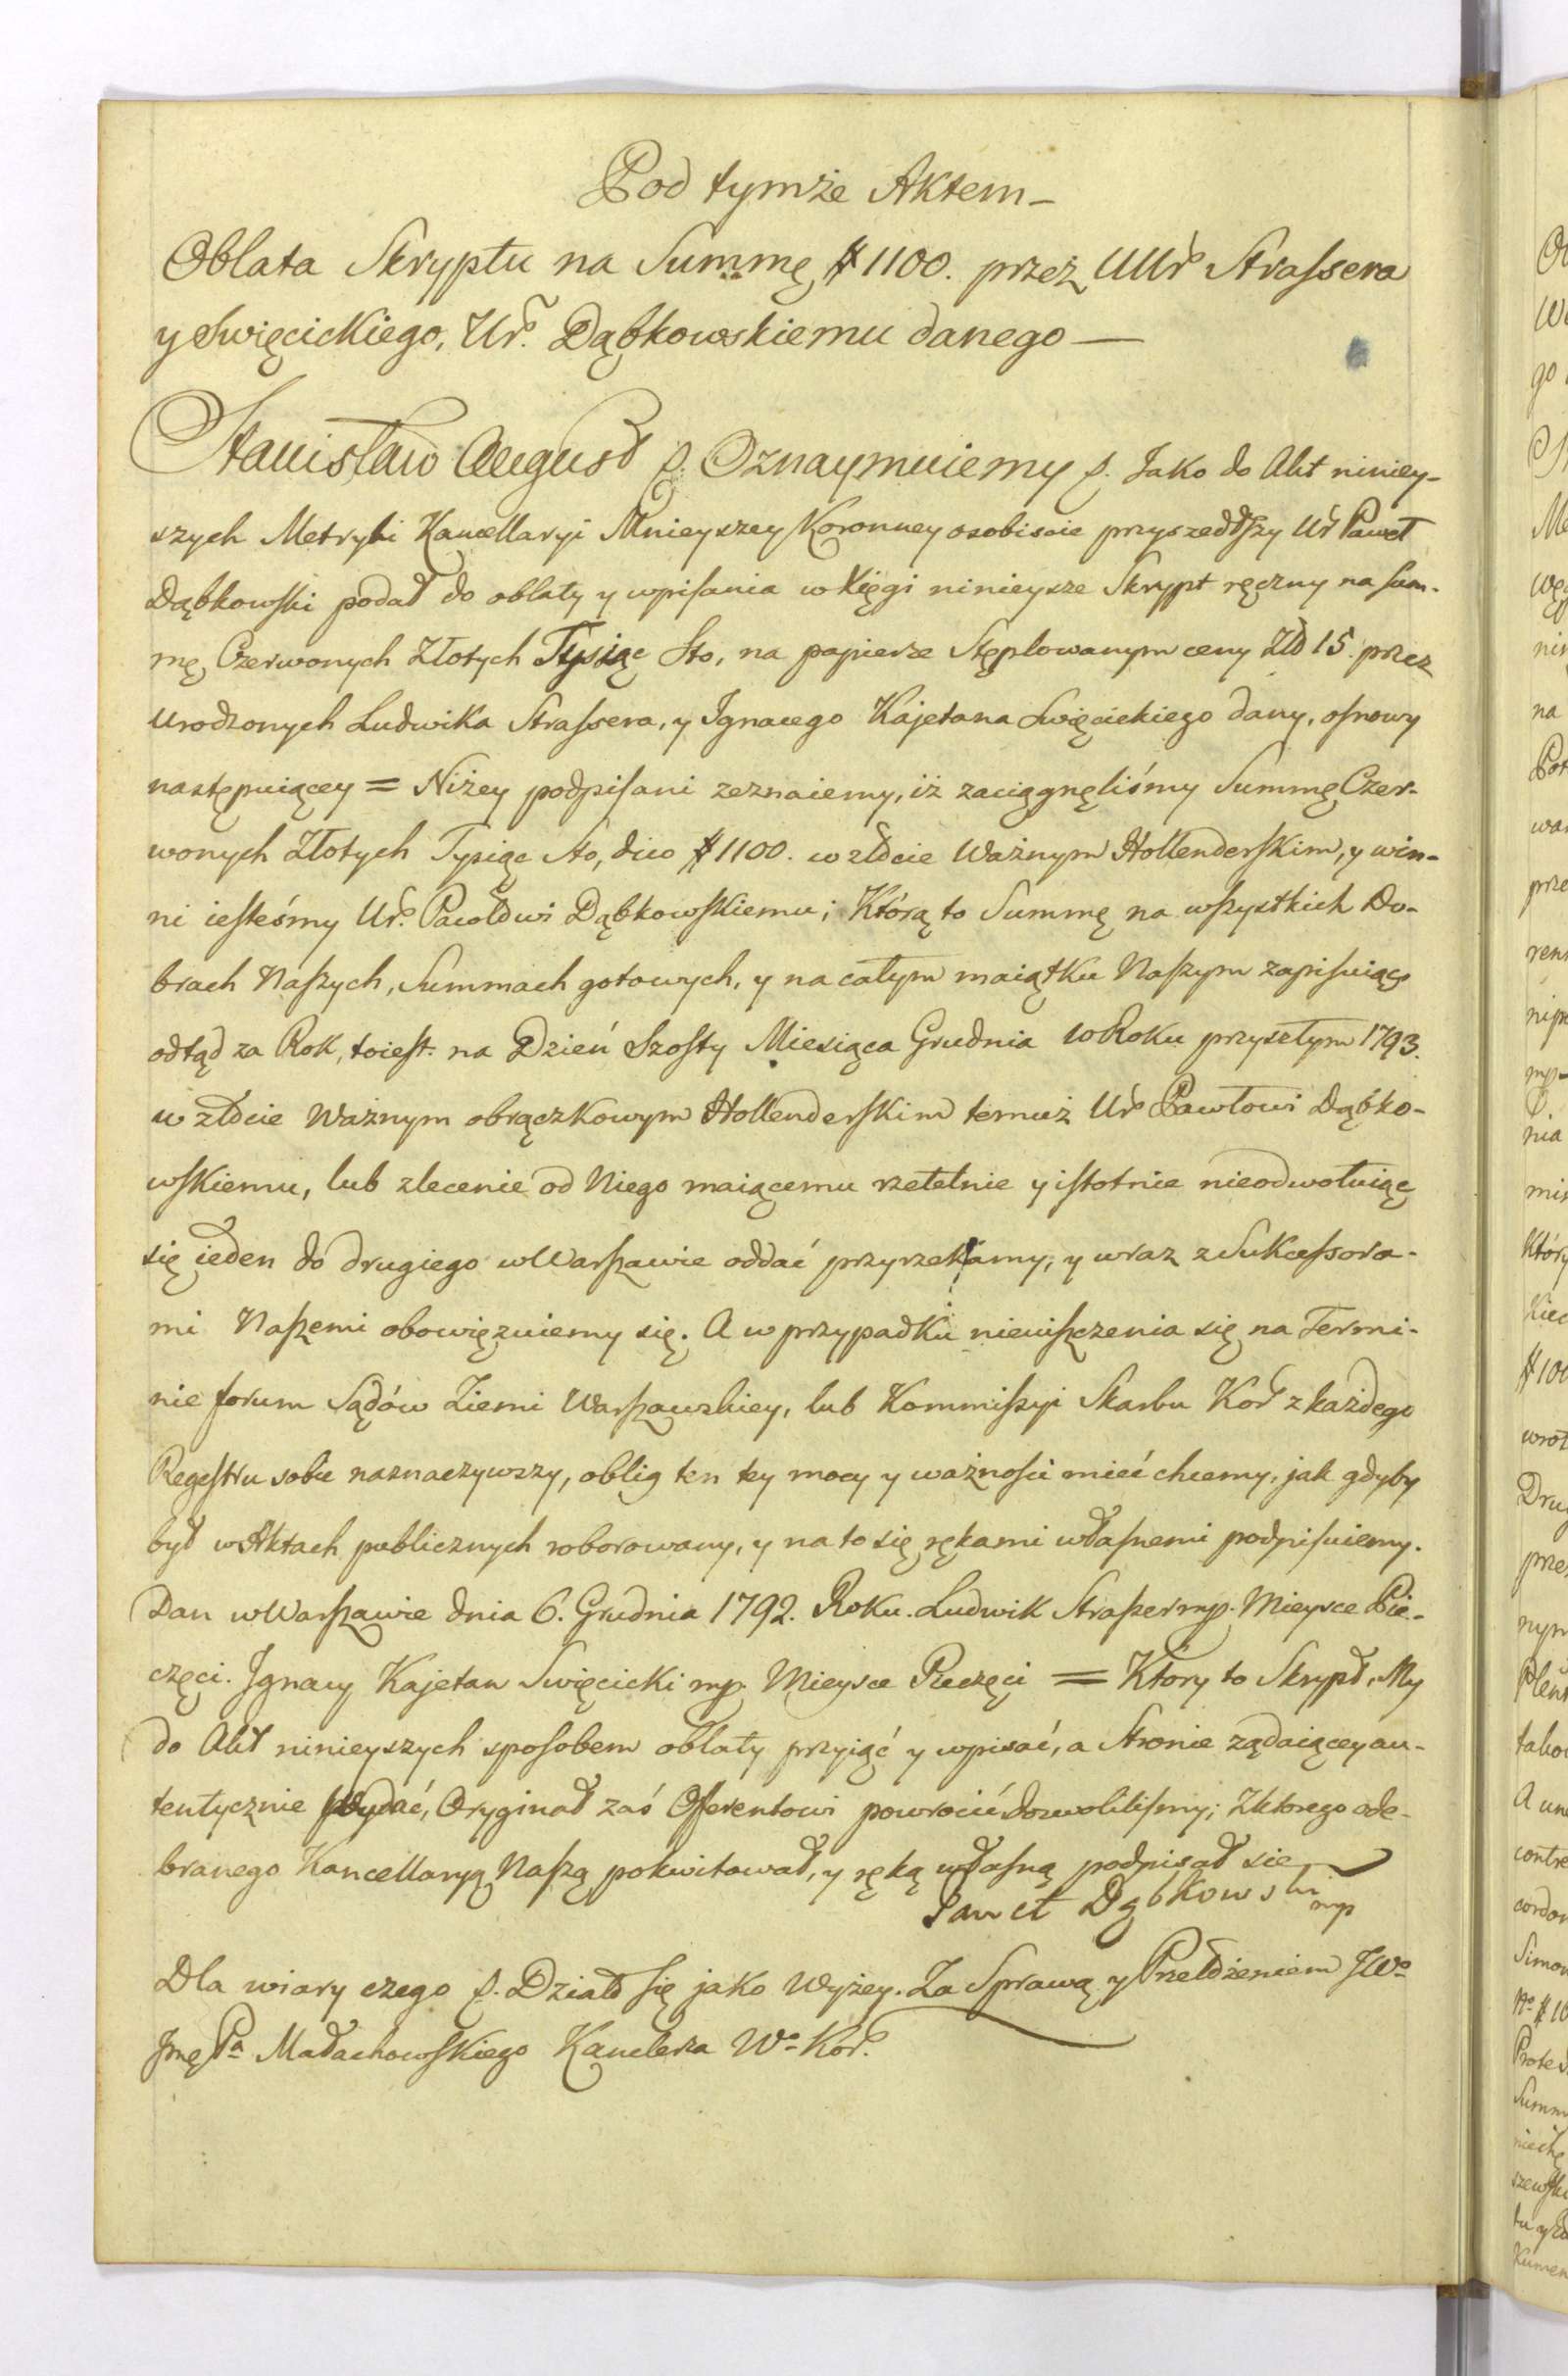 Pod tymże Aktem –
Oblata Skryptu na Summę # 1100. przez UUr. Strassera
y Swięcickiego, Ur. Dąbkowskiemu danego —
Stanisław August p. Oznaymuiemy p. Jako do Akt niniey-
szych Metryki Kancellaryi Mnieyszey Koronney osobiscie przyszedłszy Ur Paweł
Dąbkowski podał do oblaty y wpisania w Xięgi ninieysze Skrypt ręczny na Sum-
mę Czerwonych Złotych Tysiąc Sto, na papierze Stęplowanym ceny Złł 15. przez
Urodzonych Ludwika Strassera, y Ignacego Kajetana Swięcickiego dany, osnowy
następuiącey = Niżey podpisani zeznaiemy, iż zaciągnęliśmy Summę Czer-
wonych Złotych Tysiąc Sto, dico # 1100. w złocie Ważnym Hollenderskim, y win-
ni iesteśmy Ur. Pawłowi Dąbkowskiemu; Którą to Summę na wszystkich Do-
brach Naszych, Summach gotowych, y na całym maiątku Naszym zapisuiąc
odtąd za Rok, toiest. na Dzień Szosty Miesiąca Grudnia w Roku przyszłym 1793.
w złocie Ważnym obrączkowym Hollenderskim temuż Ur Pawłowi Dąbko-
wskiemu, lub zlecenie od Niego maiącemu rzetelnie y istotnie nieodwołuiąc
się ieden do drugiego w Warszawie oddać przyrzekamy, y wraz z Sukcessora-
mi Naszemi obowięzuiemy się. A w przypadku nieuiszczenia się na Termi-
nie forum Sądów Ziemi Warszawskiey, lub Kommissyi Skarbu Kor z każdego
Regestru sobie naznaczywszy, oblig ten tey mocy y ważności mieć chcemy, jak gdyby
był w Aktach publicznych roborowany, y na to się rękami własnemi podpisuiemy.
Dan w Warszawie dnia 6. Grudnia 1792. Roku. Ludwik Strasser mp. Mieysce Pie-
częci. Ignacy Kajetan Swięcicki mp. Mieysce Pieczęci = Który to Skrypt, My
do Akt ninieyszych sposobem oblaty przyiąć y wpisać, a Stronie żądaiącey au-
tentycznie wydać, Oryginał zaś Offerentowi powrocić dozwolilismy; Z ktorego ode-
branego Kancellaryą Naszą pokwitował, y ręką własną podpisał się
Paweł Dąbkowski mp
Dla wiary czego p. Działo się jako Wyżey. Za Sprawą y Przełożeniem JWo
Jmę Pa Małachowskiego Kanclerza Wo Kor.